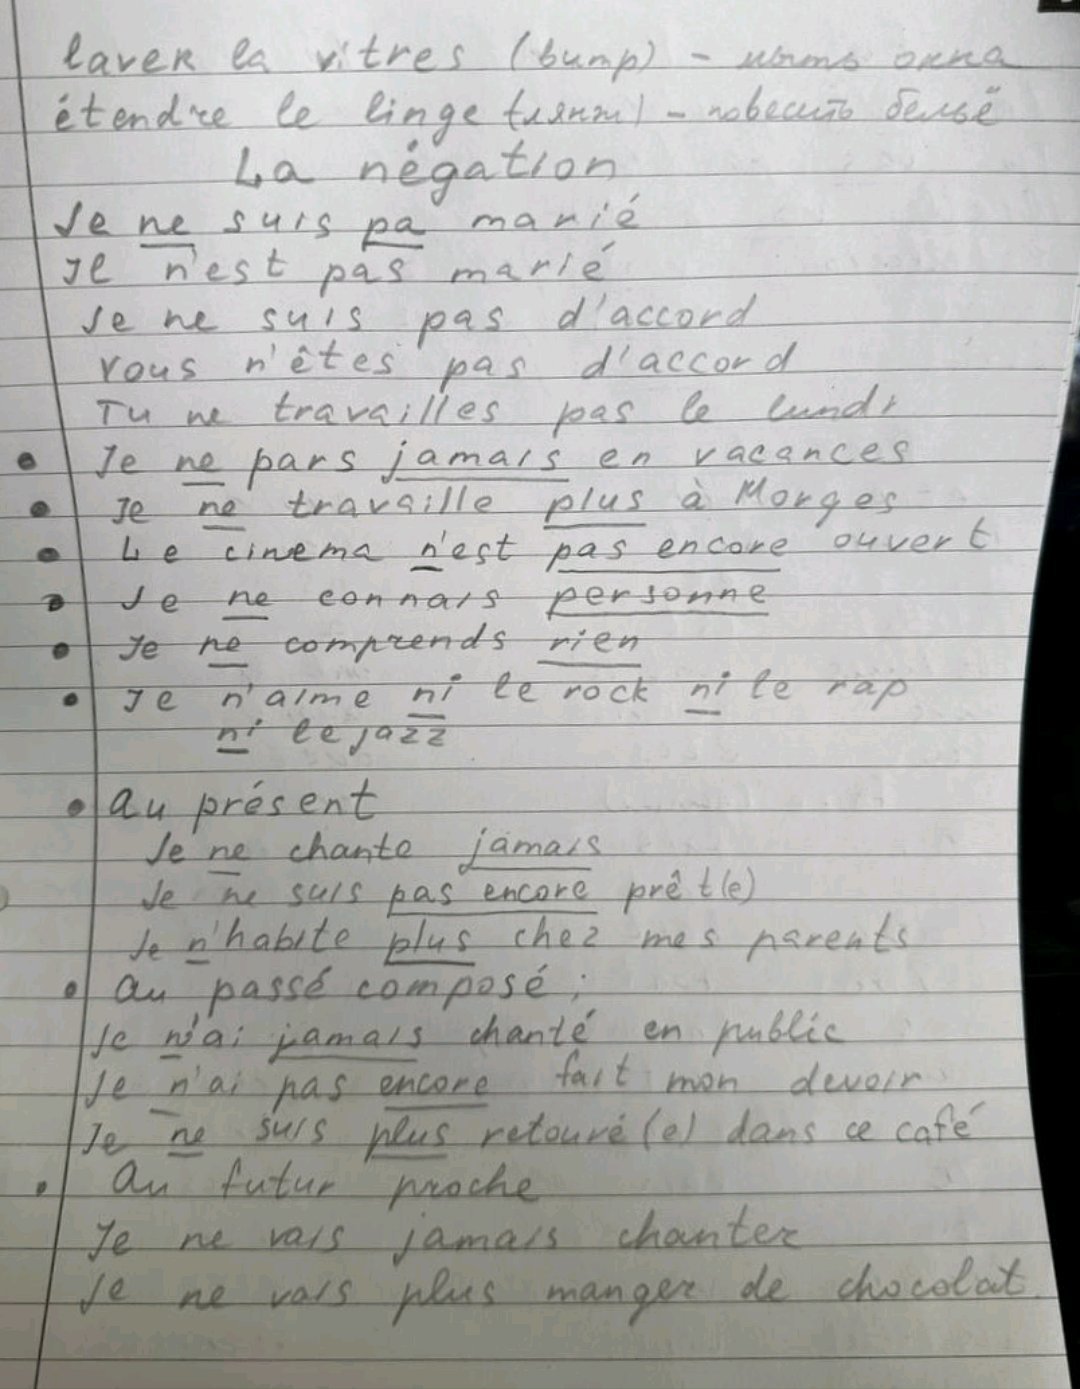 laver la vitres (витр) - мыть окна
étendre le linge (лянж) - повесить бельё
La négation
Je ne suis pa marié
Il n'est pas marié
Je ne suis pas d'accord
Vous n'êtes pas d'accord
Tu ne travailles pas le lundi
• Je ne pars jamais en vacances
• Je ne travaille plus à Morges
• Le cinema n'est pas encore ouvert
• Je ne connais personne
• Je ne comprends rien
• Je n'aime ni le rock ni le rap
ni le jazz
• Au présent
Je ne chante jamais
Je ne suis pas encore prêt(e)
Je n'habite plus chez mes parents
• Au passé composé;
Je n'ai jamais chanté en public
Je n'ai pas encore fait mon devoir
Je ne suis plus retouré(e) dans ce café
• Au futur proche
Je ne vais jamais chanter
Je ne vais plus manger de chocolat.